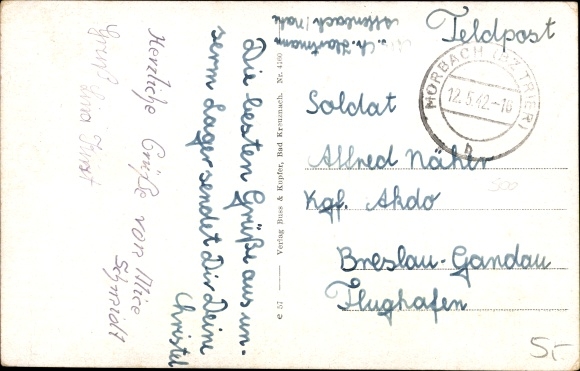 Feldpost
Chr. Hartmann
MORBACH (BZ TRIER)
12.5.42-18
h
Soldat
Alfred Näher
Kgf. Akdo
Breslau-Gandau
Flughafen
Die besten Grüße aus un-
serm Lager sendet Dir Deine
Christel
Herzliche Grüße von Alice
Schmidt
Gruß
e 51 — Verlag Buss & Kupfer, Bad Kreuznach. Nr. 4160
500
5.-